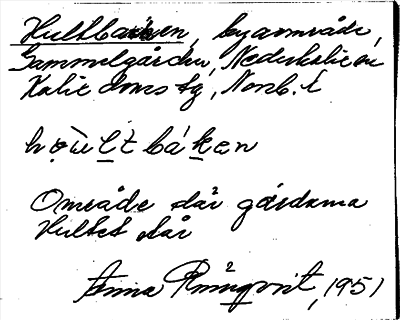 Hultbacken, byområde,
Gammelgården, Nederkalix en
Kalix domstg, Norrb. l
họ̀ùlt bákan
Område där gårdarna
Hultet står
Anna Rönnqvist, 1951